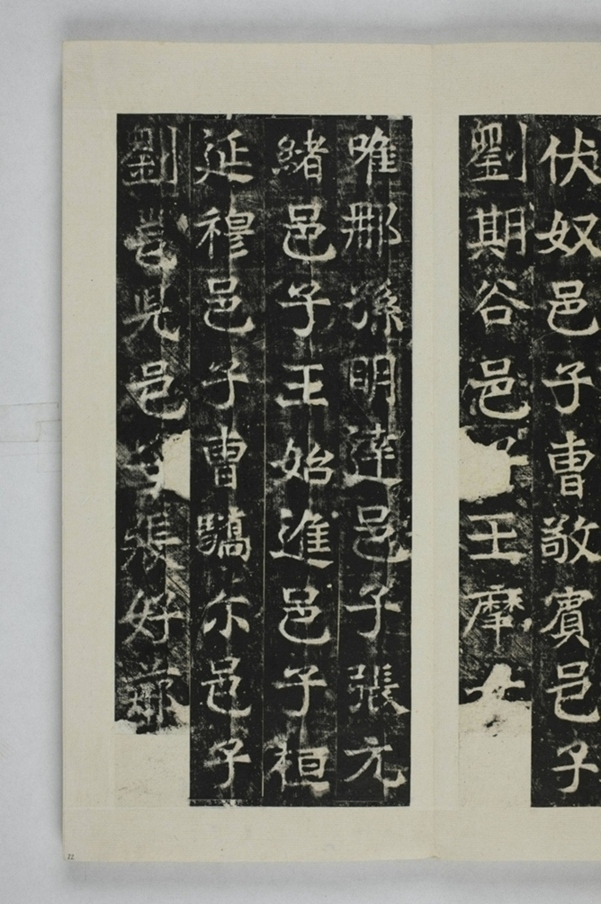 伏奴邑子曹敬賓邑子
劉期谷邑王摩
唯那孫明達邑子張元
緒邑子王始進邑子桓
延穆邑子曹驕尒邑子
劉兒邑子張好